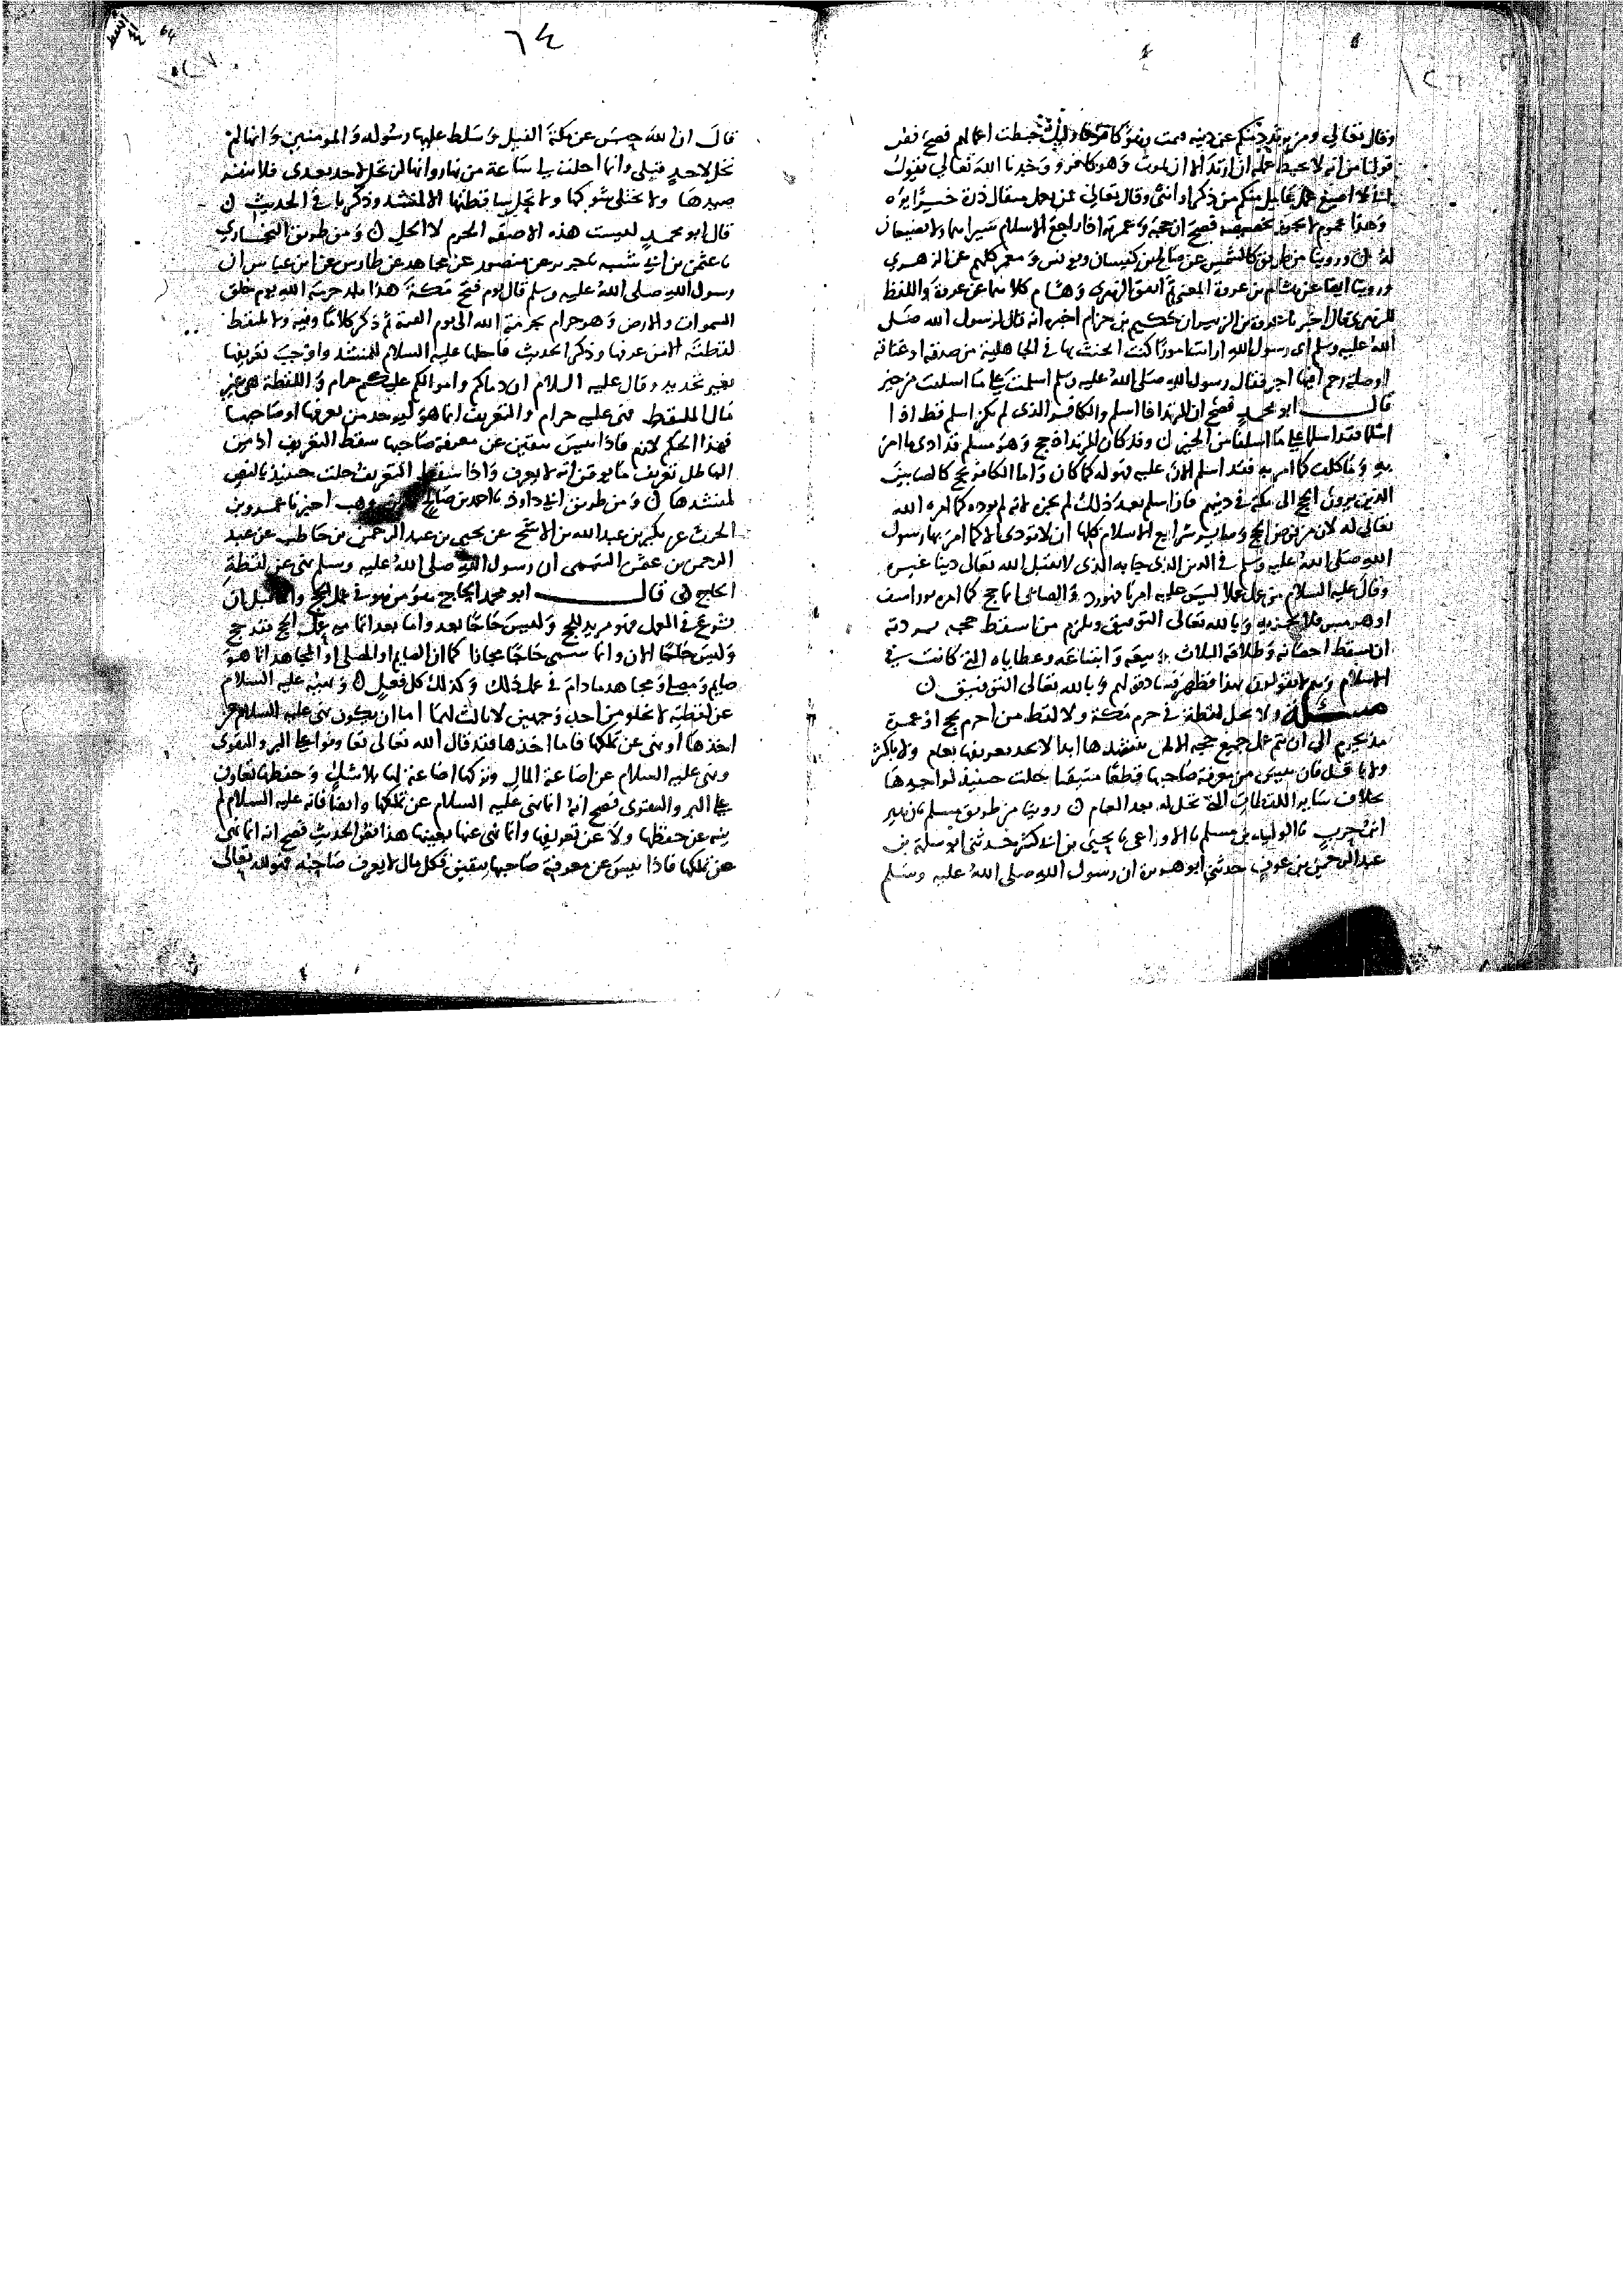 وقال تعالى ومن يرتدد منكم عن دينه فيمت وهو كافر فاوليك حبطت اعمالهم فصح نص
قولنا من انه لا يحبط عمله ان ارتد الا ان يموت وهو كافر ووجدنا الله تعالى يقول
انى لا اضيع عمل عامل منكم من ذكر او انثى وقال تعالى فمن يعمل مثقال ذرة خيرا يره
وهذا عموم لا يجوز تخصيصه فصح ان حجه وعمرته اذا راجع الاسلام سيراهما ولا يضيعان
له ن وروينا من طريق كالشمس عن صالح بن كيسان ويونس ومعمر كلهم عن الزهري
وروينا ايضا عن هشام بن عروة المعنى ثم اتفق الزهري وهشام كلاهما عن عروة واللفظ
للزهري قال اخبرنا عروة بن الزبير ان حكيم بن حزام اخبره انه قال لرسول الله صلى
الله عليه وسلم اى رسول الله ارايت امورا كنت اتحنث بها في الجاهلية من صدقة او عتاقة
او صلة رحم افيها اجر فقال رسول الله صلى الله عليه وسلم اسلمت على ما اسلفت من خير
قال ابو محمد فصح ان المرتد اذا اسلم والكافر الذى لم يكن اسلم قط اذا
اسلما فقد اسلما على ما اسلفا من الخير ن وقد كان المرتد اذ حج وهو مسلم قد ادى ما امر
به وما كلف كما امر به فقد اسلم الآن عليه فهو له كما كان واما الكافر يحج كالصابيين
الذين يرون الحج الى مكة في دينهم فان اسلم بعد ذلك لم يجزه لانه لم يوده كما امره الله
تعالى به لان من فرض الحج وساير شرايع الاسلام كلها ان لا تودى الا كما امر بها رسول
الله صلى الله عليه وسلم في الدين الذى جا به الذى لا يقبل الله تعالى دينا غيره
وقال عليه السلام من عمل عملا ليس عليه امرنا فهو رد والصابى انما حج كما امره يوراسف
او هرمس فلا يجزيه وبالله تعالى التوفيق ويلزم من اسقط حجه بردته
ان يسقط احصانه وطلاقه الثلاث وبيعه وابتياعه وعطاياه التى كانت في
الاسلام وهم لا يقولون بهذا فظهر فساد قولهم وبالله تعالى التوفيق ن
مسئلة ولا تحل لقطة في حرم مكة ولا لقطة من احرم بحج او عمرة
مذ يحرم الى ان يتم عمل جميع حجه الا لمن ينشدها ابدا لا يحد تعريفها بعام ولا باكثر
ولا باقل فان يئس من معرفة صاحبها قطعا متيقنا حلت حينيذ لواجدها
بخلاف ساير اللقطات التى تحل له بعد العام ن روينا من طريق مسلم نا زهير
ابن حرب نا الوليد بن مسلم نا الاوزاعى نا يحيى بن ابى كثير حدثنى ابو سلمة بن
عبد الرحمن بن عوف حدثنى ابو هريرة ان رسول الله صلى الله عليه وسلم
٦٤
قال ان الله حبس عن مكة الفيل وسلط عليها رسوله والمومنين وانها لن
تحل لاحد قبلى وانما احلت لى ساعة من نهار وانها لن تحل لاحد بعدى فلا ينفر
صيدها ولا يختلى شوكها ولا تحل ساقطتها الا لمنشد وذكر باقى الحديث ن
قال ابو محمد ليست هذه الا صفة الحرم لا الحل ن ومن طريق البخارى
نا عثمن بن ابى شيبه نا جرير عن منصور عن مجاهد عن طاوس عن ابن عباس ان
رسول الله صلى الله عليه وسلم قال يوم فتح مكة هذا بلد حرمه الله يوم خلق
السموات والارض وهو حرام بحرمة الله الى يوم القيمة ثم ذكر كلاما وفيه ولا يلتقط
لقطته الا من عرفها وذكر الحديث فاحلها عليه السلام للمنشد واوجب تعريفها
بغير تحديد وقال عليه السلام ان دماكم واموالكم عليكم حرام واللقطة هى غير
مال الملتقط فهى عليه حرام والتعريف انما هو ليوجد من يعرفها او صاحبها
فهذا الحكم لازم فاذا يئس بيقين عن معرفة صاحبها سقط التعريف اذ من
الباطل تعريف ما يوقن انه لا يعرف واذا سقط التعريف حلت حينيذ بالنص
لمنشدها ن ومن طريق ابى داود نا احمد بن صالح وهب اخبرنا عمرو بن
الحرث عن بكير بن عبد الله بن الاشج عن يحيى بن عبد الرحمن بن حاطب عن عبد
الرحمن بن عثمن التيمى ان رسول الله صلى الله عليه وسلم نهى عن لقطة
الحاج ن قال ابو محمد الحاج هو من هو في عمل الحج واما قبل ان
يشرع في العمل فهو مريد للحج وليس حاجا بعد واما بعد اتمامه عمل الحج فقد حج
وليس حاجا الآن وانما سمى حاجا مجازا كما ان الصايم او المصلى او المجاهد انما هو
صايم ومصل ومجاهد ما دام في عمل ذلك وكذلك كل فعل ن ونهيه عليه السلام
عن لقطته لا يخلو من احد وجهين لا ثالث لهما اما ان يكون نهى عليه السلام عن
اخذها او نهى عن تملكها فاما اخذها فقد قال الله تعالى تعاونوا على البر والتقوى
ونهى عليه السلام عن اضاعة المال وتركها اضاعة لها بلا شك وحفظها تعاون
على البر والتقوى فصح انه انما نهى عليه السلام عن تملكها وايضا فانه عليه السلام لم
ينه عن حفظها ولا عن تعريفها وانما نهى عنها بعينها هذا نص الحديث فصح انه انما نهى
عن تملكها فاذا يئس عن معرفة صاحبها بيقين فكل مال لا يعرف صاحبه فهو لله تعالى